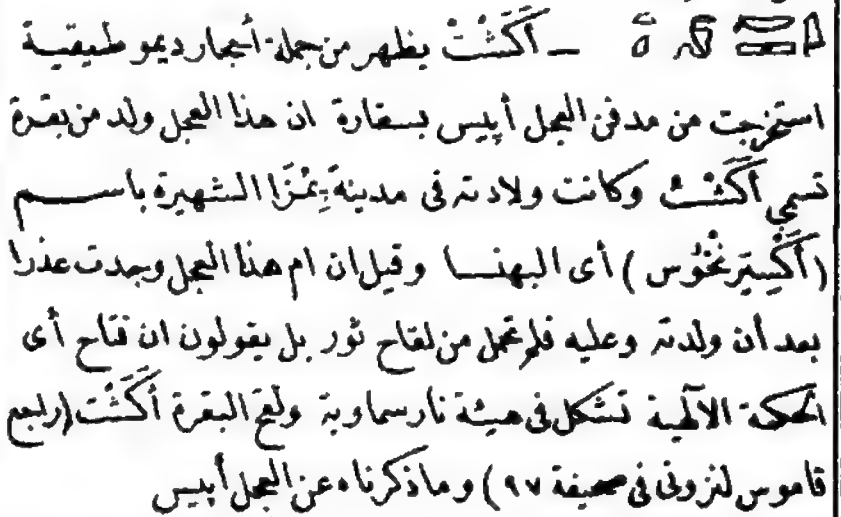 ـ أَكَشْتْ يظهر من جملة أحجار ديموطيقية
استخرجت من مدفن العجل أبيس بسقارة ان هذا العجل ولد من بقرة
تسمى أَكَشْتْ وكانت ولادته فى مدينة بِمْزَا الشهيرة باســـم
(أَكْسِيرِنْخُوس) أى البهنسا وقيل ان ام هذا العجل وجدت عذرا
بعد أن ولدته وعليه فلم تحمل من لقاح ثور بل يقولون ان فتاح أى
الحكمة الآلهية تشكل فى هيئة نار سماوية ولقح البقرة أَكَشْت (راجع
قاموس لنزونى فى صحيفة ٩٧) وما ذكرناه عن العجل أبيس